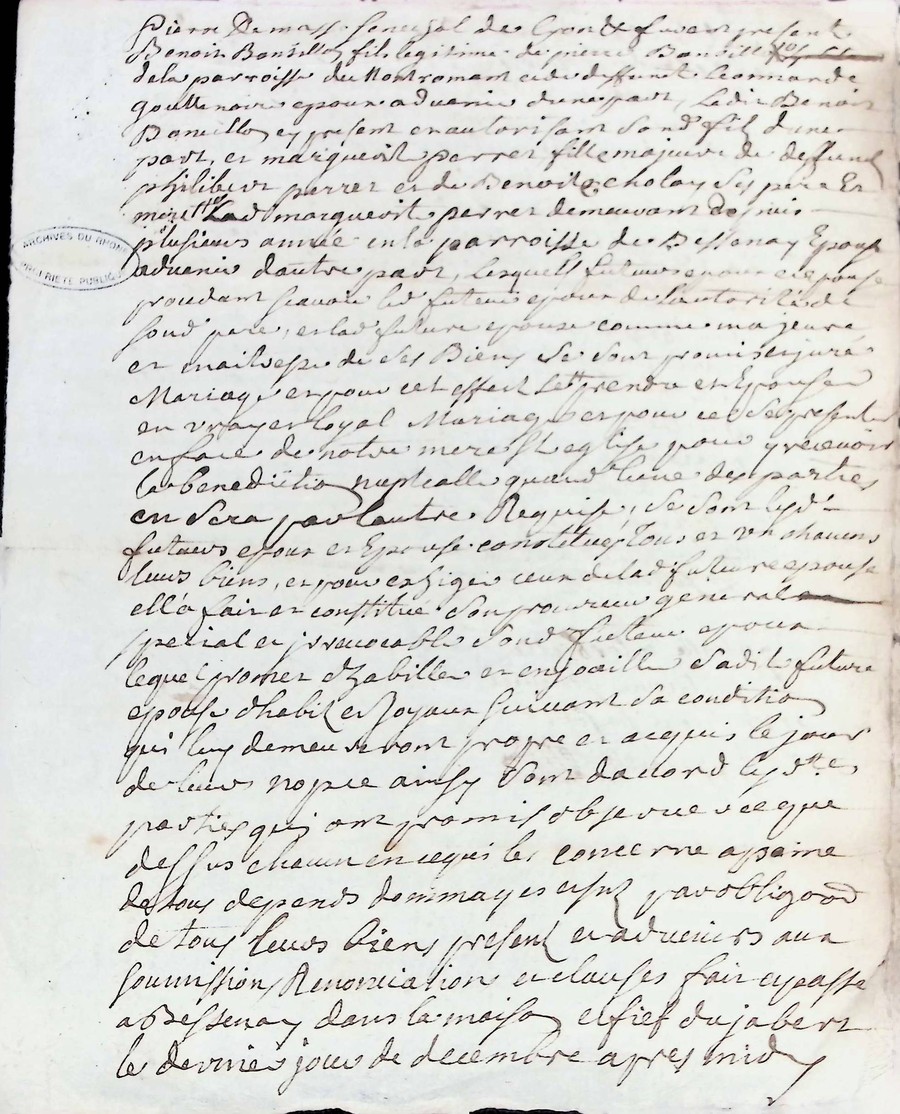 Pierre Demass. senechal de furent present
Benoit Bonvillo fils legitime de pierre Bonvillo
de la parroisse de Montromant et de deffuncte Leonnarde
gouttenoire epoux advenir d'une part, Ledit Benoit
Bonvillo y present et autorisant sond. fils d'une
part, et margueritte perret fille majeure de deffunct
philibert perret et de Benoite cholay ses pere Et
mere Lad margueritte perret demeurant depuis
plusieurs année en la parroisse de Bessenay Epouse
advenir d'autre part, lesquels futurs epoux et epouse
procedant scavoir led futeur epoux de l'autorité de
sond pere, et lad future epouse comme majeure
et maitresse de ses Biens se sont promis et juré
Mariage et pour cet effect se prendre et Epouser
en vray et loyal Mariage et pour ce se presenter
en face de notre mere Ste eglise pour y recevoir
la benediction nuptialle quand l'une des parties
en sera par l'autre Requise, se sont lesd.
futeurs epoux et Epouse constitués Tous et un chacuns
leurs biens, et pour exiger ceux de lad future epouse
ell'a fait et constitué son procureur general
special et jrrevocable sond futeur epoux
lequel promet d'habiller et enjoailler sadite future
epouse d'habits et Joyaux suivant sa condition
qui luy demeureront propre et acquis le jour
de leurs nopce ainsy sont d'accord lesdtes.
parties qui ont promis d'observer ce que
dessus chacun en ce qui les concerne a paine
de tous depends dommages et jnts par obligaon
de tous leurs biens present et advenirs aux
soumission, Renonciation et clauses fait et passé
a Bessenay dans la maison et fief du jabert
le dernier jour de decembre apres midy
ARCHIVES DU RHONE
PROPRIETE PUBLIQUE